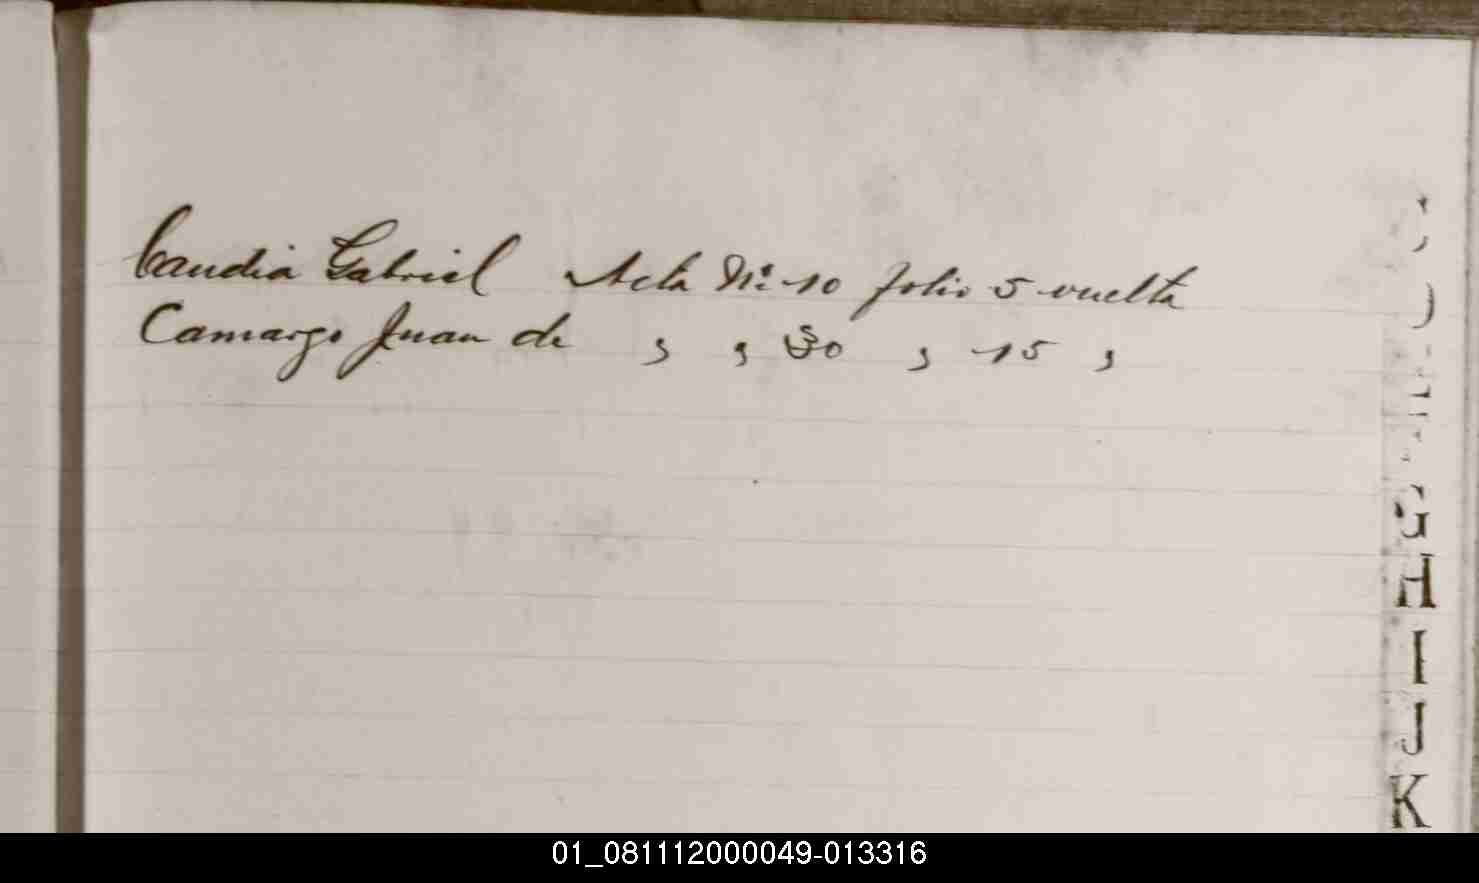 Candia Gabriel Acta Nº 10 folio 5 vuelta
Camargo Juan de , , 30 , 15 ,
G
H
I
J
K
01_081112000049-013316